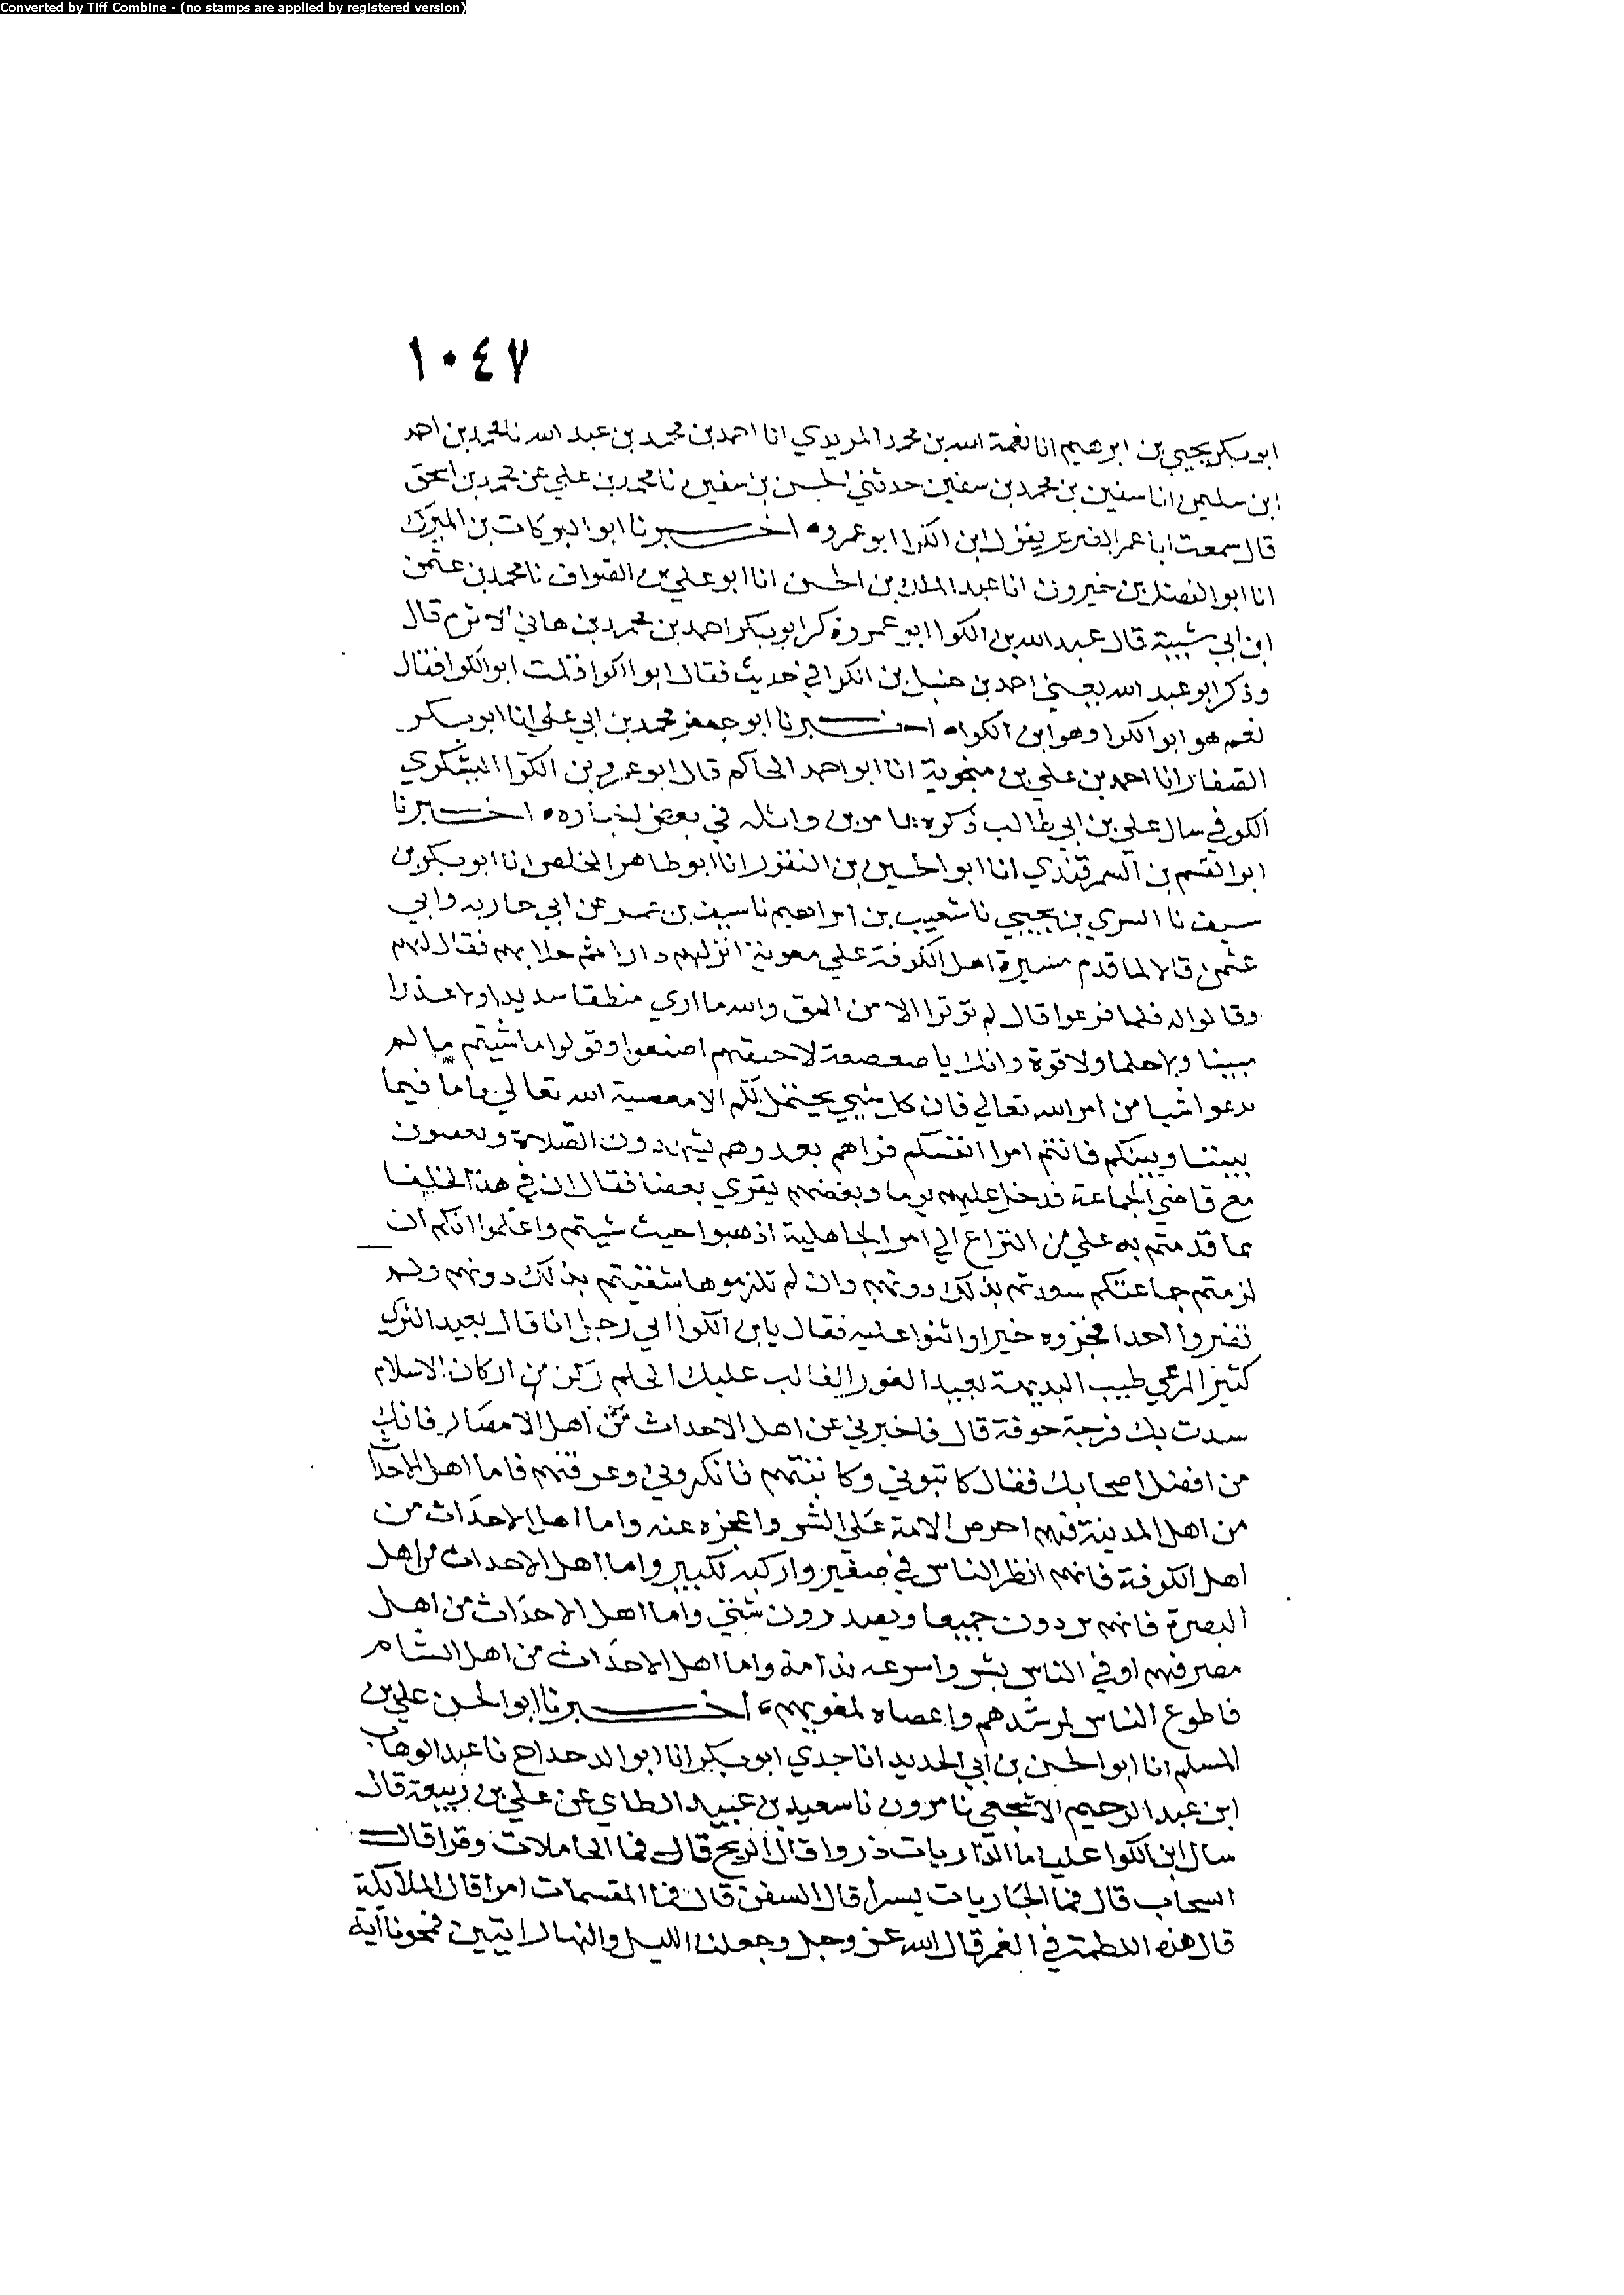 Converted by Tiff Combine - (no stamps are applied by registered version)
١٠٤٧
ابو بكر يحيي بن ابرهيم انا نعمة الله بن محمد المريدي انا احمد بن محمد بن عبد الله نا محمد بن احمد
ابن سليمن انا سفين بن محمد بن سفين حدثني الحسن بن سفين نا محمد بن علي عن محمد بن اسحق
قال سمعت ابا عمر الضرير يقول ابن الكوا ابو عمرو اخبرنا ابو البركات بن المبرك
انا ابو الفضل بن خيرون انا عبد الملك بن الحسن انا ابو علي بن الصواف نا محمد بن عثمن
ابن ابي شيبة قال عبد الله بن الكوا ابو عمرو ذكر ابو بكر احمد بن محمد بن هاني الاثرم قال
وذكر ابو عبد الله يعني احمد بن حنبل بن الكوا في حديث فقال ابو الكوا قلت ابو الكوا فقال
نعم هو ابو الكوا وهو ابن الكوا اخبرنا ابو جعفر محمد بن ابي علي انا ابو بكر
الصفار انا احمد بن علي بن منجوية انا ابو احمد الحاكم قال ابو عمرو بن الكوا اليشكري
الكوفي سال علي بن ابي طالب ذكره عامر بن واثله في بعض اخباره اخبرنا
ابو القسم بن السمرقندي انا ابو الحسين بن النقور انا ابو طاهر المخلص انا ابو بكر بن
سيف نا السري بن يحيي نا شعيب بن ابراهيم نا سيف بن عمر عن ابي حاربه وابي
عثمن قالا لما قدم مسيرة اهل الكوفة علي معوية انزلهم دارا ثم خلا بهم فقال لهم
وقالوا له فلما فرغوا قال لم توتوا الا من الحق والله ما اري منطقا سديدا ولا عذرا
مبينا ولا حلما ولا قوة وانك يا صعصعة لاحمقهم اصنعوا وقولوا ما شيتم ما لم
تدعوا شيا من امر الله تعالي فان كل شي يحتمل لكم الا معصية الله تعالي واما فيما
بيننا وبينكم فانتم امرا انفسكم فراهم بعد وهم يشهدون الصلاة ويقفون
مع قاضي الجماعة فدخل عليهم يوما وبعضهم يقري بعضا فقال ان في هذا لخلفا
مما قدمتم به علي من النزاع الي امر الجاهلية اذهبوا حيث شيتم واعلموا انكم ان
لزمتم جماعتكم سعدتم بذلك دونهم وان لم تلزموها شقيتم بذلك دونهم ولم
تضروا احدا فجزوه خيرا واثنوا عليه فقال يا بن الكوا اي رجل انا قال بعيد الثري
كثير المرعي طيب البديهة بعيد الغور الغالب عليك الحلم ركن من اركان الاسلام
سدت بك فرجة مخوفة قال فاخبرني عن اهل الاحداث من اهل الامصار فانك
من افضل اصحابك فقال كاتبوني وكاتبتهم فانكروني وعرفتهم فاما اهل الاحداث
من اهل المدينة فهم احرص الامة علي الشر واعجزه عنه واما اهل الاحداث من
اهل الكوفة فانهم انظر الناس في صغير واركبه لكبير واما اهل الاحداث من اهل
البصرة فانهم يردون جميعا ويصدرون شتي واما اهل الاحداث من اهل
مصر فهم اوفي الناس بشر واسرعه ندامة واما اهل الاحداث من اهل الشام
فاطوع الناس لمرشدهم واعصاه لمغويهم اخبرنا ابو الحسن علي بن
المسلم انا ابو الحسن بن ابي الحديد انا جدي ابو بكر انا ابو الدحداح نا عبد الوهاب
ابن عبد الرحيم الاشجعي نا مرون نا سعيد بن عبيد الطاي عن علي بن ربيعة قال
سال ابن الكوا عليا ما الذاريات ذروا قال الريح قال فما الحاملات وقرا قال
السحاب قال فما الجاريات يسرا قال السفن قال فما المقسمات امرا قال الملائكة
قال هذه اللطمة في القمر قال الله عز وجل وجعلنا الليل والنهار ايتين فمحونا آية